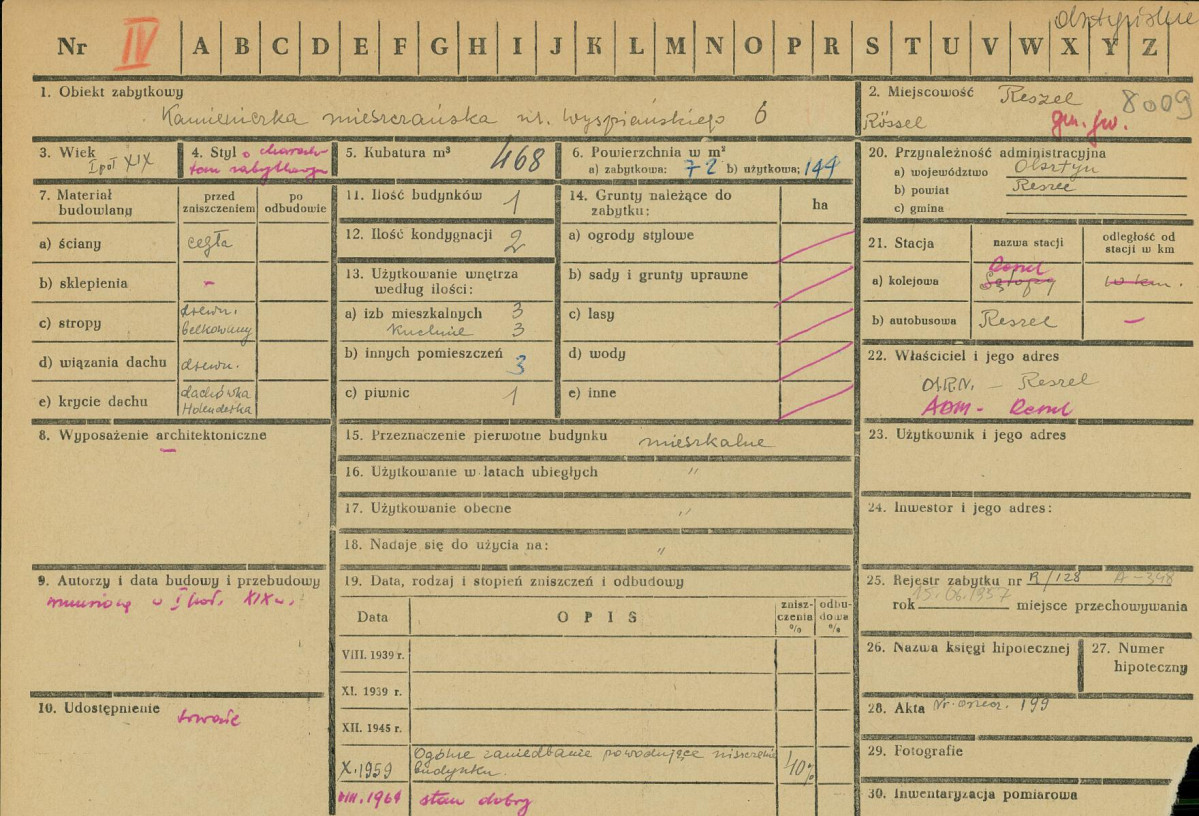 olsztyńskie
Nr IV A B C D E F G H I J K L M N O P R S T U V W X Y Z
1. Obiekt zabytkowy
Kamieniczka mieszczańska ul. Wyspiańskiego 6
2. Miejscowość Reszel 8009
Rössel gm. jw.
3. Wiek
I poł XIX
4. Styl o charak
tem zabytkowym
5. Kubatura m³ 468
6. Powierzchnia w m²
a) zabytkowa: 72 b) użytkowa: 144
7. Materiał
budowlany
przed
zniszczeniem
po
odbudowie
a) ściany cegła
b) sklepienia –
c) stropy drewn.
belkowany
d) wiązania dachu drewn.
e) krycie dachu dachówka
Holenderka
8. Wyposażenie architektoniczne
–
9. Autorzy i data budowy i przebudowy
wzniesiony w I poł. XIX w.
10. Udostępnienie trwałe
11. Ilość budynków 1
12. Ilość kondygnacji 2
13. Użytkowanie wnętrza
według ilości:
a) izb mieszkalnych 3
Kuchnie 3
b) innych pomieszczeń 3
c) piwnic 1
14. Grunty należące do
zabytku:
ha
a) ogrody stylowe
b) sady i grunty uprawne
c) lasy
d) wody
e) inne
15. Przeznaczenie pierwotne budynku mieszkalne
16. Użytkowanie w latach ubiegłych "
17. Użytkowanie obecne "
18. Nadaje się do użycia na: "
19. Data, rodzaj i stopień zniszczeń i odbudowy
Data
O P I S
znisz-
czenia
%
odbu-
dowa
%
VIII. 1939 r.
XI. 1939 r.
XII. 1945 r.
X. 1959 Ogólne zaniedbanie powodujące niszczenie
budynku. 40%
VIII. 1964 stan dobry
20. Przynależność administracyjna
a) województwo Olsztyn
b) powiat Reszel
c) gmina
21. Stacja
nazwa stacji
odległość od
stacji w km
a) kolejowa Reszel
b) autobusowa Reszel –
22. Właściciel i jego adres
M.R.N. – Reszel
ADM – Reszel
23. Użytkownik i jego adres
24. Inwestor i jego adres:
25. Rejestr zabytku nr R/128 A-348
15.06.1957
rok miejsce przechowywania
26. Nazwa księgi hipotecznej
27. Numer
hipoteczny
28. Akta 199
29. Fotografie
30. Inwentaryzacja pomiarowa